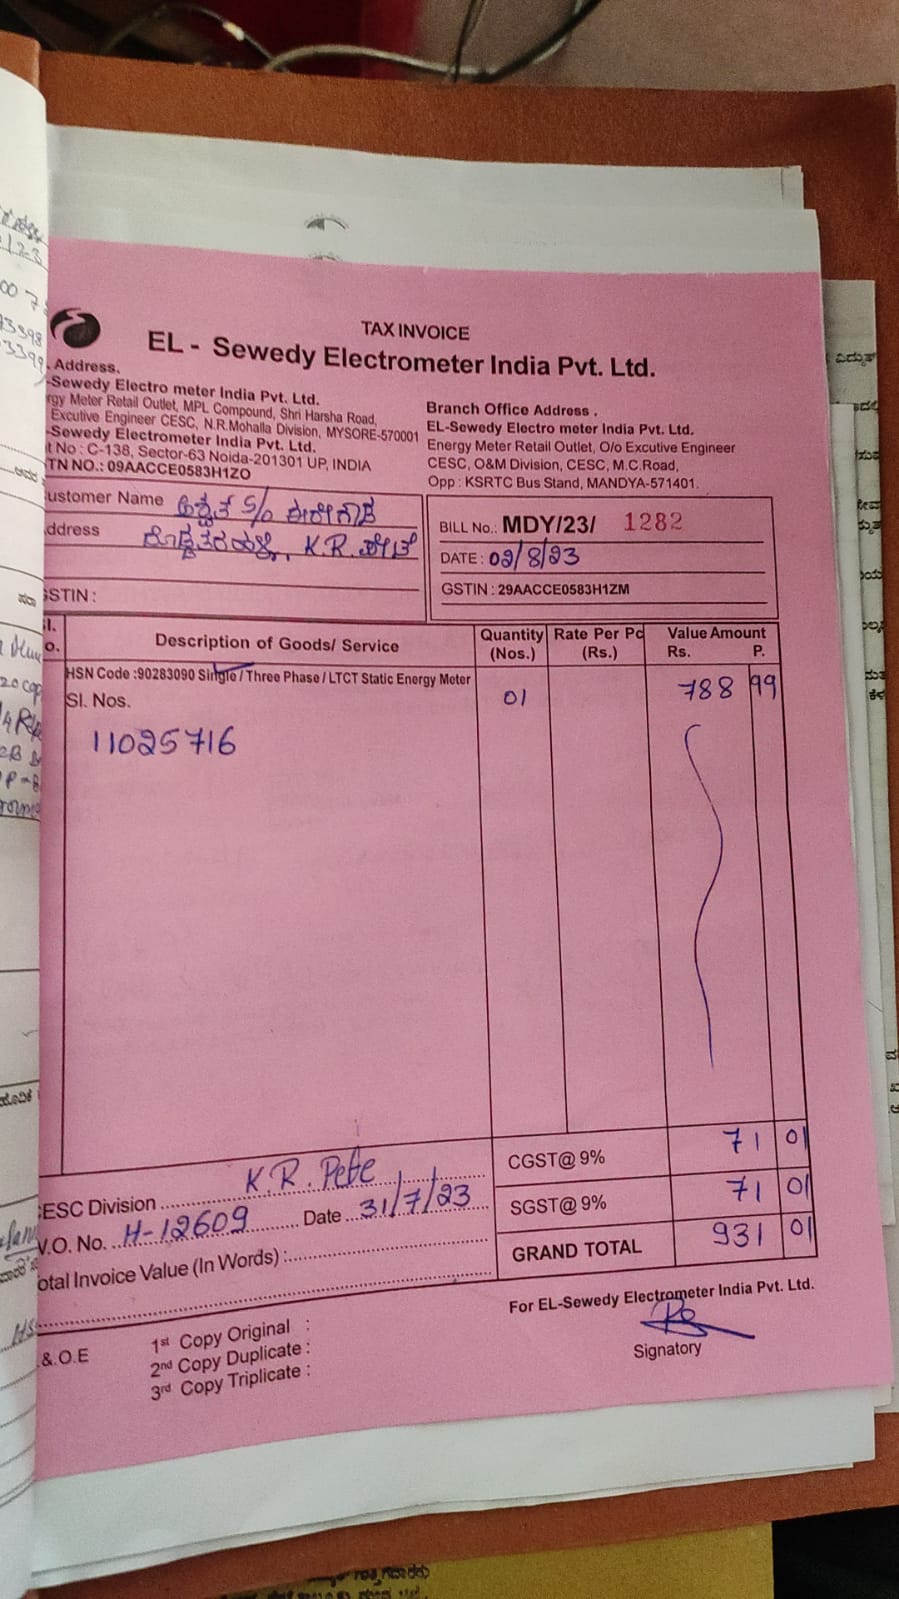 TAX INVOICE
EL - Sewedy Electrometer India Pvt. Ltd.
Address.
-Sewedy Electro meter India Pvt. Ltd.
rgy Meter Retail Outlet, MPL Compound, Shri Harsha Road,
Excutive Engineer CESC, N.R.Mohalla Division, MYSORE-570001
-Sewedy Electrometer India Pvt. Ltd.
t No : C-138, Sector-63 Noida-201301 UP, INDIA
TN NO.: 09AACCE0583H1ZO
Branch Office Address .
EL-Sewedy Electro meter India Pvt. Ltd.
Energy Meter Retail Outlet, O/o Excutive Engineer
CESC, O&M Division, CESC, M.C.Road,
Opp : KSRTC Bus Stand, MANDYA-571401.
ustomer Name S/o
ddress K.R. ಪೇಟೆ
STIN :
BILL No.: MDY/23/ 1282
DATE : 02/8/23
GSTIN : 29AACCE0583H1ZM
l. o. Description of Goods/ Service Quantity (Nos.) Rate Per Pc (Rs.) Value Amount Rs. P.
HSN Code :90283090 Single / Three Phase / LTCT Static Energy Meter
Sl. Nos. 01 788 99
11025716
CGST@ 9% 71 01
SGST@ 9% 71 01
GRAND TOTAL 931 01
ESC Division K.R. Pete
V.O. No. H-12609 Date 31/7/23
otal Invoice Value (In Words) :
For EL-Sewedy Electrometer India Pvt. Ltd.
Signatory
.&.O.E
1st Copy Original :
2nd Copy Duplicate :
3rd Copy Triplicate :